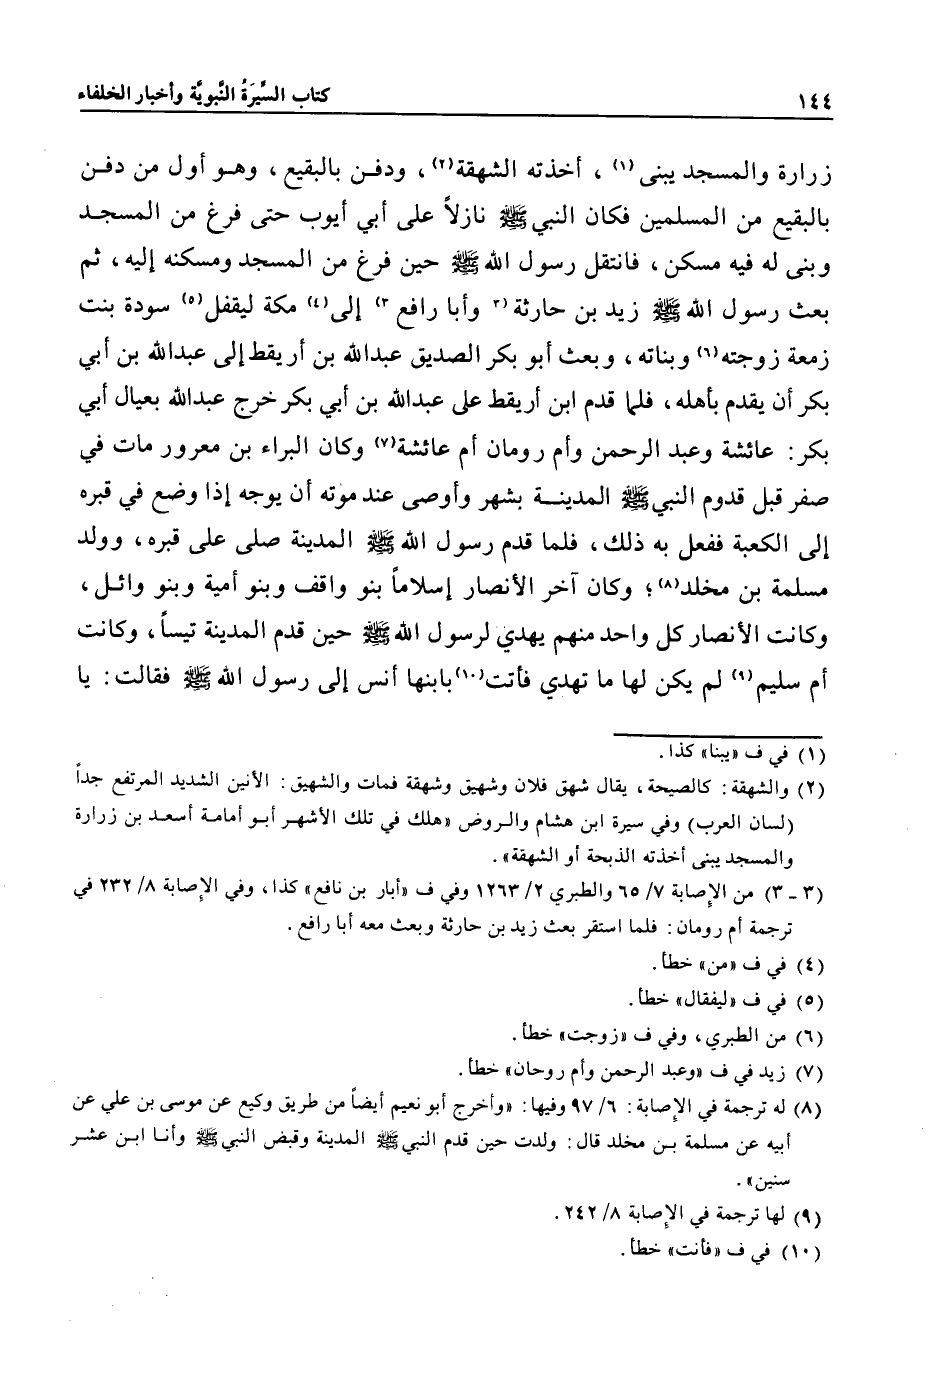 ١٤٤ كتاب السِّيرَةُ النَّبويَّة وأخبار الخلفاء
زرارة والمسجد يبنى(١) ، أخذته الشهقة(٢) ، ودفن بالبقيع ، وهو أول من دفن
بالبقيع من المسلمين فكان النبي ﷺ نازلاً على أبي أيوب حتى فرغ من المسجد
وبنى له فيه مسكن ، فانتقل رسول الله ﷺ حين فرغ من المسجد ومسكنه إليه ، ثم
بعث رسول الله ﷺ زيد بن حارثة (٣ وأبا رافع ٣) إلى(٤) مكة ليقفل(٥) سودة بنت
زمعة زوجته(٦) وبناته ، وبعث أبو بكر الصديق عبدالله بن أريقط إلى عبدالله بن أبي
بكر أن يقدم بأهله ، فلما قدم ابن أريقط على عبدالله بن أبي بكر خرج عبدالله بعيال أبي
بكر : عائشة وعبد الرحمن وأم رومان أم عائشة(٧) وكان البراء بن معرور مات في
صفر قبل قدوم النبي ﷺ المدينة بشهر وأوصى عند موته أن يوجه إذا وضع في قبره
إلى الكعبة ففعل به ذلك ، فلما قدم رسول الله ﷺ المدينة صلى على قبره ، وولد
مسلمة بن مخلد(٨) ؛ وكان آخر الأنصار إسلاماً بنو واقف وبنو أمية وبنو وائل ،
وكانت الأنصار كل واحد منهم يهدي لرسول الله ﷺ حين قدم المدينة تيساً ، وكانت
أم سليم(٩) لم يكن لها ما تهدي فأتت(١٠) بابنها أنس إلى رسول الله ﷺ فقالت : يا
(١) في ف «يبنا» كذا .
(٢) والشهقة : كالصيحة ، يقال شهق فلان وشهيق وشهقة فمات والشهيق : الأنين الشديد المرتفع جداً
(لسان العرب) وفي سيرة ابن هشام والروض «هلك في تلك الأشهر أبو أمامة أسعد بن زرارة
والمسجد يبنى أخذته الذبحة أو الشهقة» .
(٣ - ٣) من الإصابة ٧/ ٦٥ والطبري ٢/ ١٢٦٣ وفي ف «أبار بن نافع» كذا ، وفي الإصابة ٨/ ٢٣٢ في
ترجمة أم رومان : فلما استقر بعث زيد بن حارثة وبعث معه أبا رافع .
(٤) في ف «من» خطأ .
(٥) في ف «ليفقال» خطأ .
(٦) من الطبري ، وفي ف «زوجت» خطأ .
(٧) زيد في ف «وعبد الرحمن وأم روحان» خطأ .
(٨) له ترجمة في الإصابة : ٦/ ٩٧ وفيها : «وأخرج أبو نعيم أيضاً من طريق وكيع عن موسى بن علي عن
أبيه عن مسلمة بن مخلد قال : ولدت حين قدم النبي ﷺ المدينة وقبض النبي ﷺ وأنا ابن عشر
سنين» .
(٩) لها ترجمة في الإصابة ٨/ ٢٤٢ .
(١٠) في ف «فأنت» خطأ .